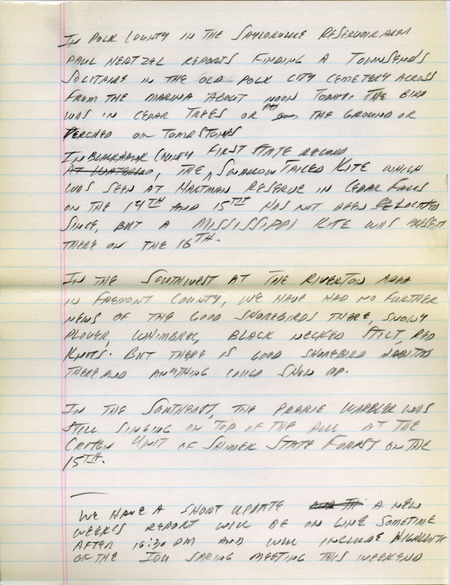 IN POLK COUNTY IN THE SAYLORVILLE RESERVOIR AREA
PAUL HERTZEL REPORTS FINDING A TOWNSEND'S
SOLITAIRE IN THE OLD POLK CITY CEMETERY ACROSS
FROM THE MARINA ABOUT NOON TODAY. THE BIRD
WAS IN CEDAR TREES OR ON THE GROUND OR
PERCHED ON TOMBSTONES
IN BLACKHAWK COUNTY FIRST STATE RECORD
AT WATERLOO, THE, SWALLOW TAILED KITE WHICH
WAS SEEN AT HARTMAN RESERVE IN CEDAR FALLS
ON THE 14TH AND 15TH HAS NOT BEEN RELOCATED
SINCE, BUT A MISSISSIPPI KITE WAS PRESENT
THERE ON THE 16TH.
IN THE SOUTHWEST AT THE RIVERTON AREA
IN FREMONT COUNTY, WE HAVE HAD NO FURTHER
NEWS OF THE GOOD SHOREBIRDS THERE, SNOWY
PLOVER, WHIMBREL, BLACK NECKED STILT, RED
KNOTS. BUT THERE IS GOOD SHOREBIRD HABITAT
THERE AND ANYTHING COULD SHOW UP.
IN THE SOUTHEAST, THE PRARIE WARBLER WAS
STILL SINGING ON TOP OF THE HILL AT THE
CROTON UNIT OF SHIMEK STATE FOREST ON THE
15TH.
WE HAVE A SHORT UPDATE A NEW
WEEKES REPORT WILL BE ON LINE SOMETIME
AFTER 10:30 PM AND WILL INCLUDE HIGHLIGHTS
OF THE IOU SPRING MEETING THIS WEEKEND